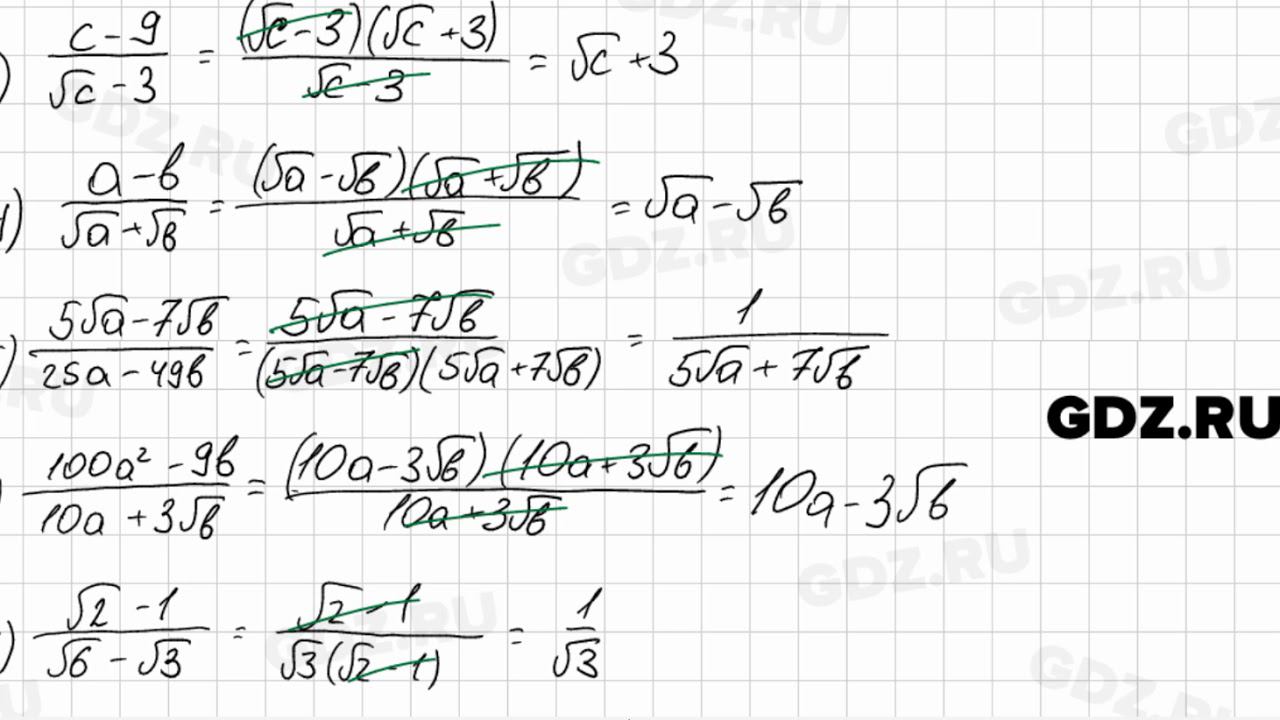 ) (c - 9)/(√c - 3) = ((√c - 3)(√c + 3))/(√c - 3) = √c + 3
) (a - в)/(√a + √в) = ((√a - √в)(√a + √в))/(√a + √в) = √a - √в
) (5√a - 7√в)/(25a - 49в) = (5√a - 7√в)/((5√a - 7√в)(5√a + 7√в)) = 1/(5√a + 7√в)
GDZ.RU
(100a² - 9в)/(10a + 3√в) = ((10a - 3√в)(10a + 3√в))/(10a + 3√в) = 10a - 3√в
) (√2 - 1)/(√6 - √3) = (√2 - 1)/(√3(√2 - 1)) = 1/√3